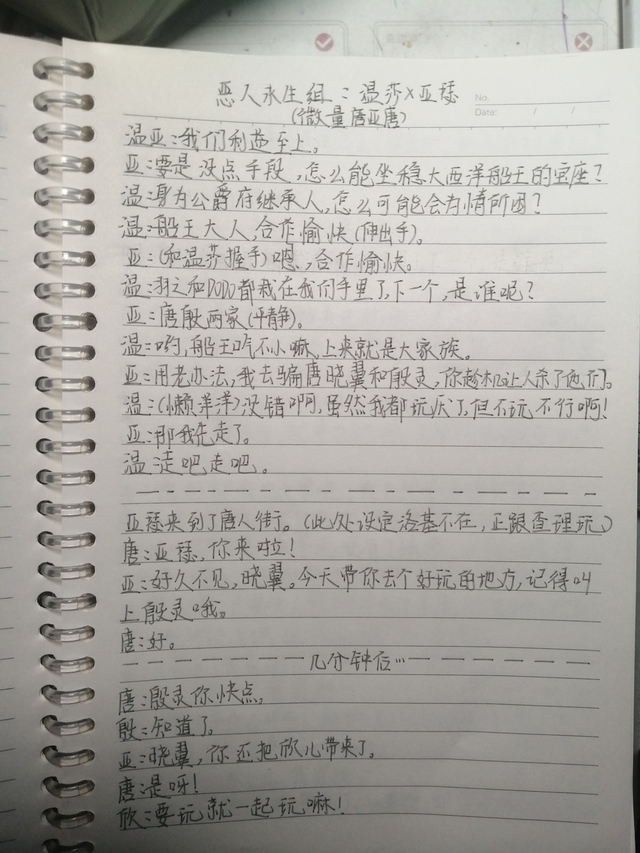 恶人永生组：温莎×亚瑟
No.
(微量唐亚唐)
Date: / /
温亚：我们利益至上。
亚：要是没点手段，怎么能坐稳大西洋船王的宝座？
温：身为公爵府继承人，怎么可能会为情所困？
温：船王大人，合作愉快(伸出手)。
亚：(和温莎握手)嗯，合作愉快。
温：羽之和DODO都栽在我们手里了，下一个，是谁呢？
亚：唐殷两家(平静)。
温：哟，船王吃不小嘛，上来就是大家族。
亚：用老办法，我去骗唐晓翼和殷灵，你趁机让人杀了他们。
温：(懒洋洋)没错啊，虽然我都玩厌了，但不玩不行啊！
亚：那我先走了。
温：走吧走吧。
亚瑟来到了唐人街。(此处设定洛基不在，正跟查理玩)
唐：亚瑟，你来啦！
亚：好久不见，晓翼。今天带你去个好玩的地方，记得叫
上殷灵哦。
唐：好。
几分钟后…
唐：殷灵你快点。
殷：知道了。
亚：晓翼，你还把欣儿带来了。
唐：是呀！
欣：要玩就一起玩嘛！